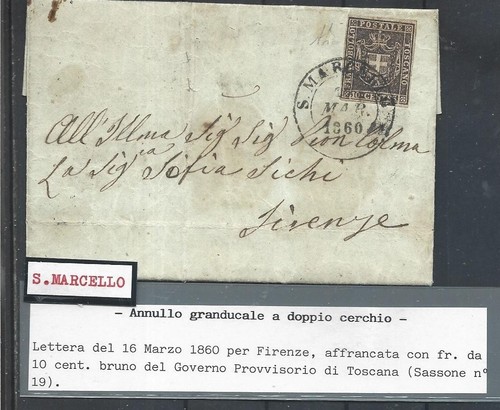 POSTALE
BOLLO
TOSCANO
10 CENT
S. MARCELLO
MAR.
1860
All'Illma Sig Sig Pron Colma
La Sigra Sofia Sichi
Firenze
S.MARCELLO
– Annullo granducale a doppio cerchio –
Lettera del 16 Marzo 1860 per Firenze, affrancata con fr. da
10 cent. bruno del Governo Provvisorio di Toscana (Sassone n°
19).